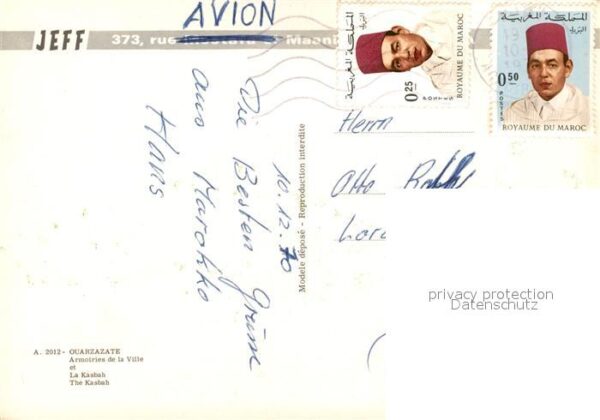 AVION
JEFF
373, rue Mostafa El Maani
المملكة المغربية
البريد
0.25
POSTES
ROYAUME DU MAROC
المملكة المغربية
البريد
0.50
POSTES
ROYAUME DU MAROC
10.12.70
Die Besten Grüsse
aus Marokko
Hans
Herrn
Otto
Modele déposé - Reproduction interdite
privacy protection
Datenschutz
A. 2012 - OUARZAZATE
Armoiries de la Ville
et
La Kasbah
The Kasbah